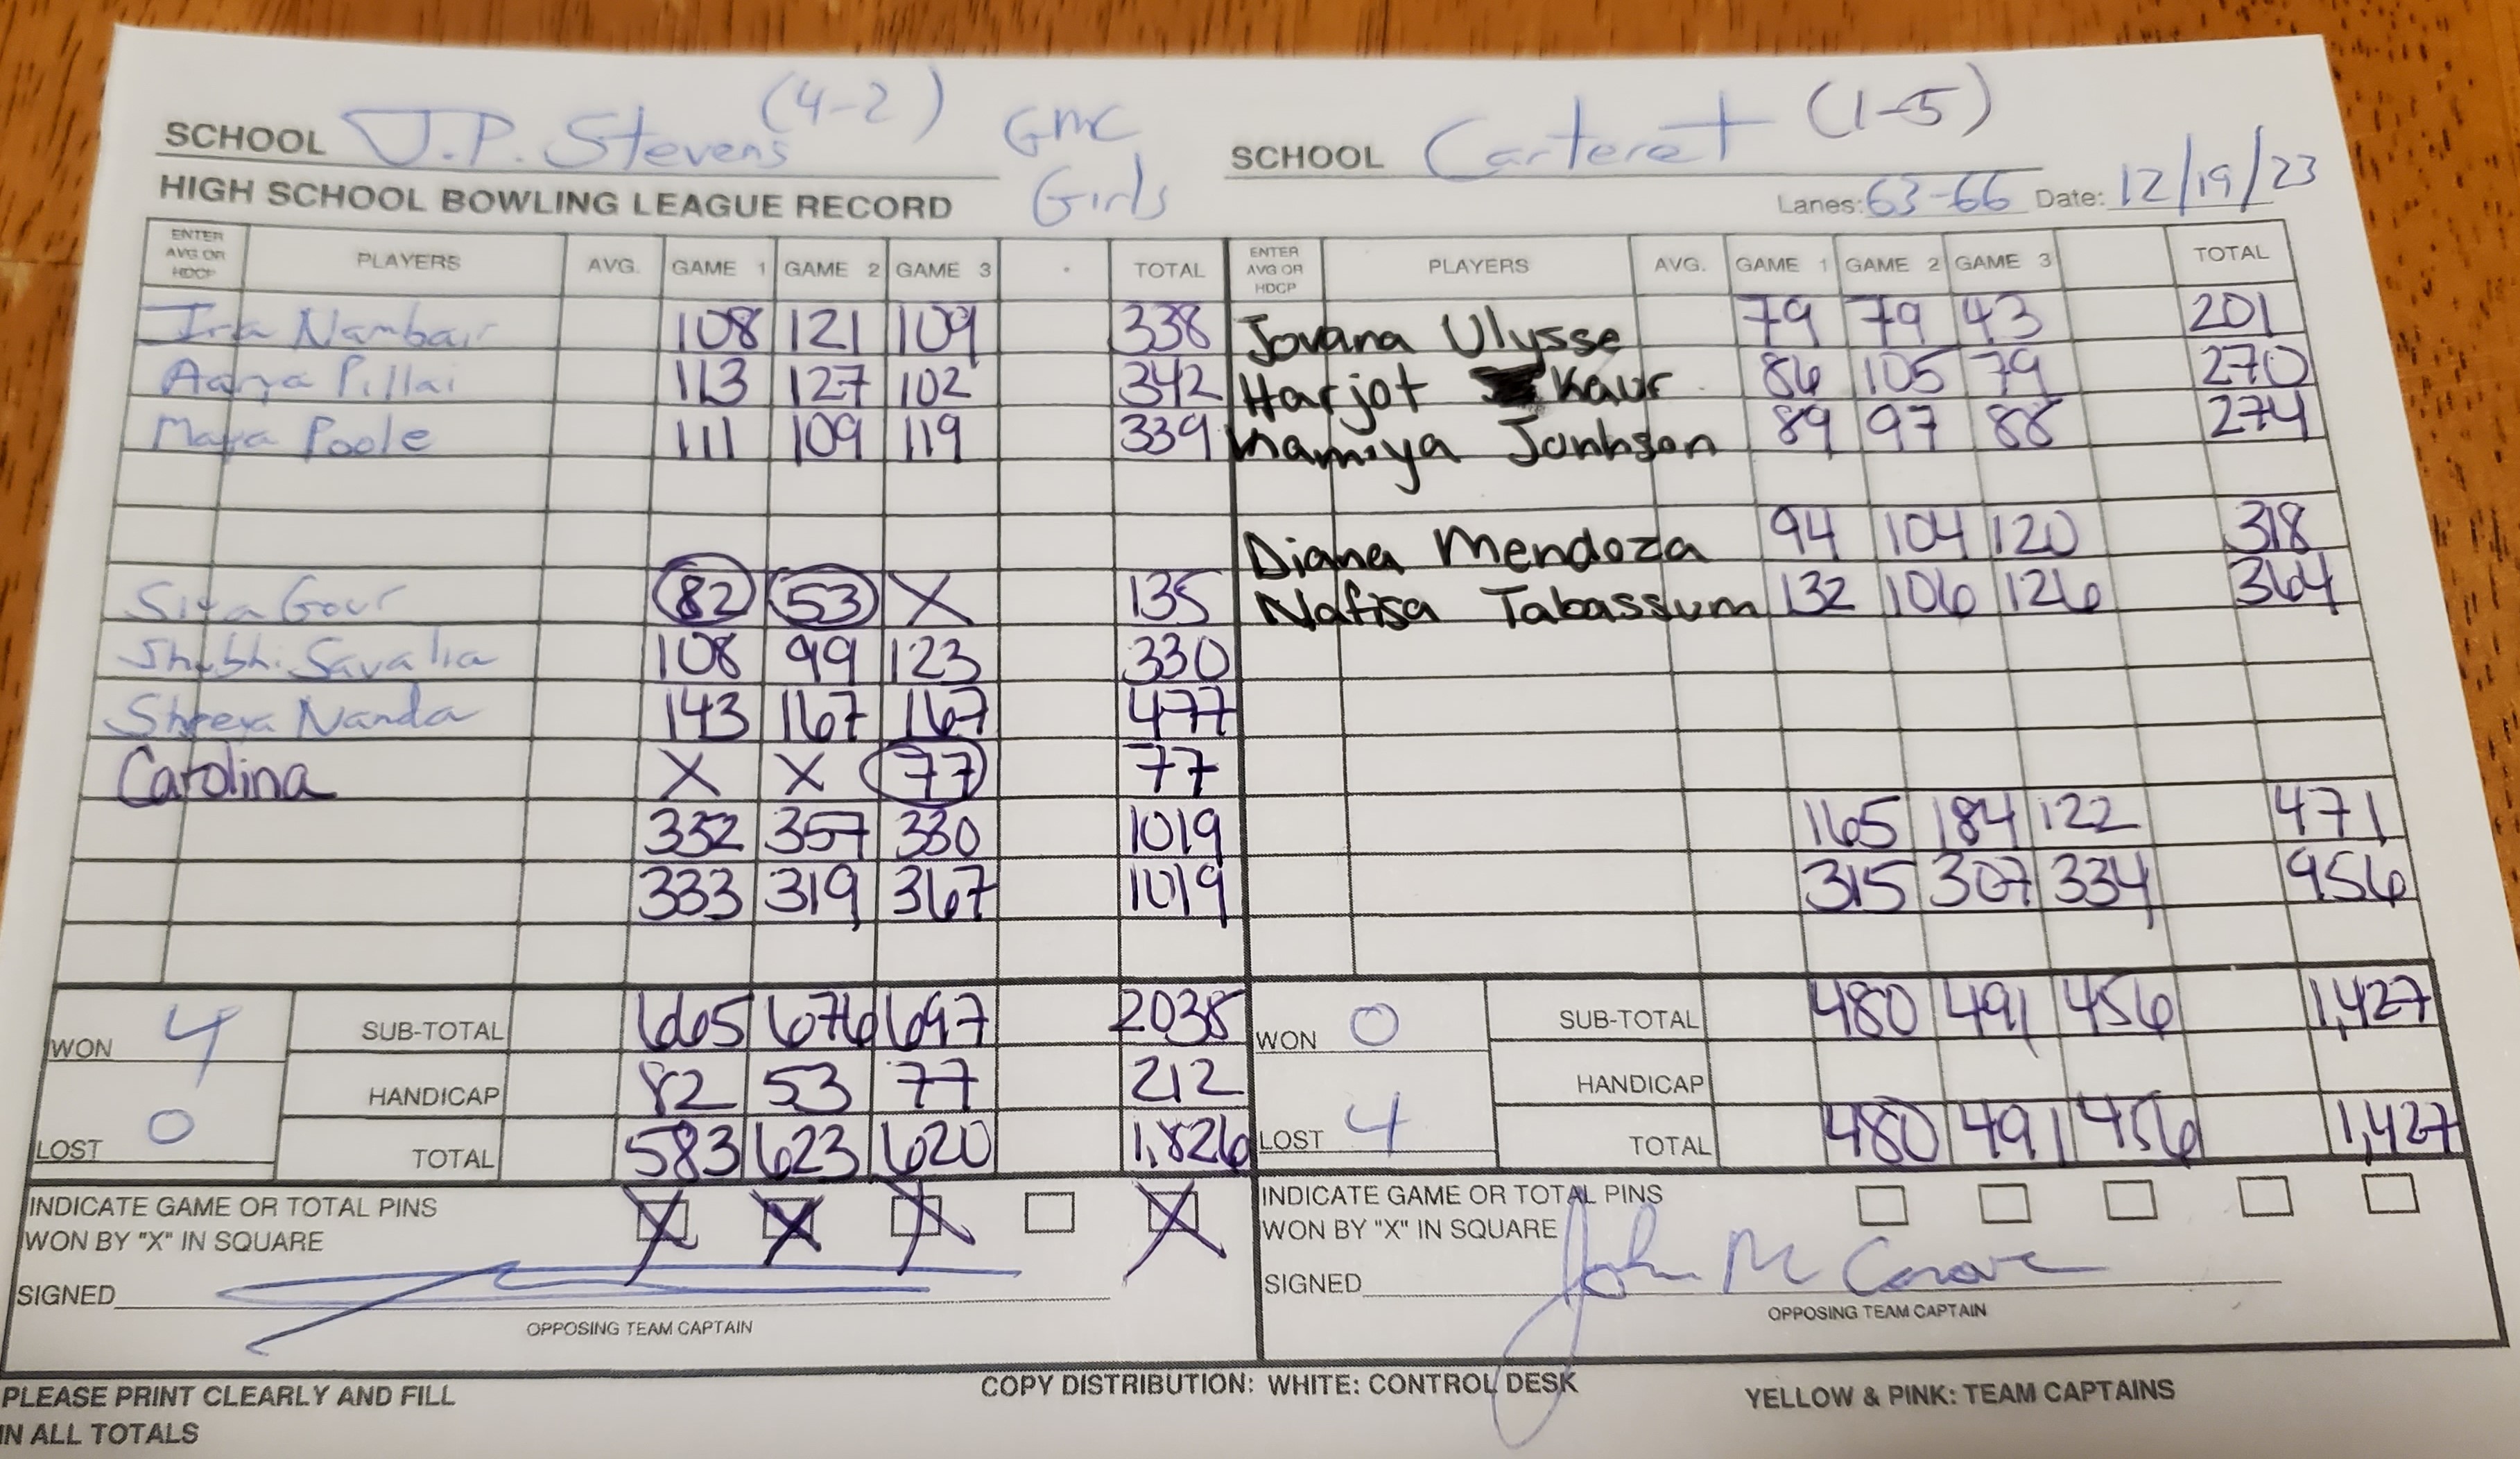 SCHOOL J.P. Stevens (4-2) GMC Girls
SCHOOL Carteret (1-5)
HIGH SCHOOL BOWLING LEAGUE RECORD
Lanes: 63-66 Date: 12/19/23
ENTER AVG OR HDCP PLAYERS AVG. GAME 1 GAME 2 GAME 3 TOTAL
Ira Nambair 108 121 109 338
Aarya Pillai 113 127 102 342
Maya Poole 111 109 119 339
Siya Gour 82 53 X 135
Shubhi Savalia 108 99 123 330
Shreya Nanda 143 167 167 477
Carolina X X 77 77
332 357 330 1019
333 319 367 1019
WON 4
LOST 0
SUB-TOTAL 665 676 697 2038
HANDICAP 82 53 77 212
TOTAL 583 623 620 1,826
INDICATE GAME OR TOTAL PINS
WON BY "X" IN SQUARE X X X X
SIGNED
OPPOSING TEAM CAPTAIN
ENTER AVG OR HDCP PLAYERS AVG. GAME 1 GAME 2 GAME 3 TOTAL
Jovana Ulysse 79 79 43 201
Harjot Kaur 86 105 79 270
Kamiya Jonhson 89 97 88 274
Diana Mendoza 94 104 120 318
Nafisa Tabassum 132 106 126 364
165 184 122 471
315 307 334 956
WON 0
LOST 4
SUB-TOTAL 480 491 456 1,427
HANDICAP
TOTAL 480 491 456 1,427
INDICATE GAME OR TOTAL PINS
WON BY "X" IN SQUARE
SIGNED John M
OPPOSING TEAM CAPTAIN
PLEASE PRINT CLEARLY AND FILL
IN ALL TOTALS
COPY DISTRIBUTION: WHITE: CONTROL DESK
YELLOW & PINK: TEAM CAPTAINS